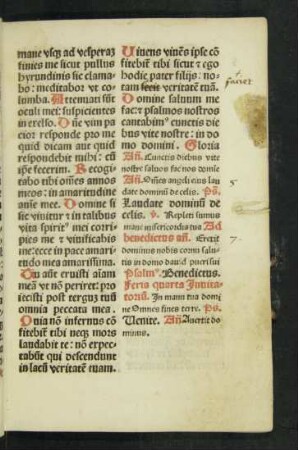 mane vsq; ad vesperaz
finies me sicut pullus
hyrundinis sic clama-
bo: meditabor vt co-
lumba. Attenuati sūt
oculi mei: suspicientes
in excelso. Dn̄e vim pa-
cior responde pro me
quid dicam aut quid
respondebit mihi: cū
ip̄e fecerim. Recogi-
tabo tibi om̄es annos
meos: in amaritudine
anime mee. Domine si
sic viuitur & in talibus
vita spirit⁹ mei corri-
pies me & viuificabis
me: ecce in pace amari-
tudo mea amarissima.
Tu aūt eruisti aīam
meā vt nō periret: pro
iecisti post tergū tuū
omnia peccata mea.
Quia nō infernus cō
fitebit̄ tibi neq; mors
laudabit te: nō expec-
tabūt qui descendunt
in lacū veritatē tuam.
Viuens viuēs ipse cō
fitebit̄ tibi sicut & ego
hodie: pater filijs: no-
tam fecit veritatē tuā.
faciet
Domine saluum me
fac: & psalmos nostros
cantabim⁹ cunctis die
bus vite nostre: in do
mo domini. Gloria
Añ. Cunctis diebus vite
nostre saluos fac nos domīe
Añ. Om̄es angeli eius lau
date dominū de celis. Ps.
5
Laudate dominū de
celis. v. Repleti sumus
mani misericordia tua Ad
benedictus añ. Erexit
7.
dominus nobis cornu salu-
tis in domo dauid pueri sui
Psalm⁹. Benedictus.
Feria quarta Inuita-
toriū. In manu tua domi
ne Omnes fines terre. Ps.
Uenite. Añ Auertit do
minus.